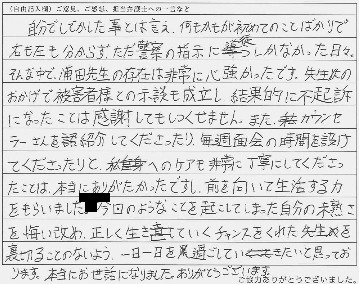 (自由記入欄)ご意見、ご感想、担当弁護士への一言など
自分でしでかした事とは言え、何もかもが初めてのことばかりで
右も左も分からず、ただ警察の指示に従うしかなかった日々。
そんな中で、濱田先生の存在は非常に心強かったです。先生の
おかげで被害者様との示談も成立し、結果的に不起訴
になったことは感謝してもしつくせません。また、カウンセ
ラーさんを紹介してくださったり、毎週面会の時間を設け
てくださったりと、私自身へのケアも非常に丁寧にしてくださっ
たことは、本当にありがたかったですし、前を向いて生活する力
をもらいました。今回のようなことを起こしてしまった自分の未熟さ
を悔い改め、正しく生きていくチャンスをくれた先生を
裏切ることのないよう、一日一日を過ごしていきたいと思ってお
ります。本当にお世話になりました。ありがとうございます。
ご協力ありがとうございました。